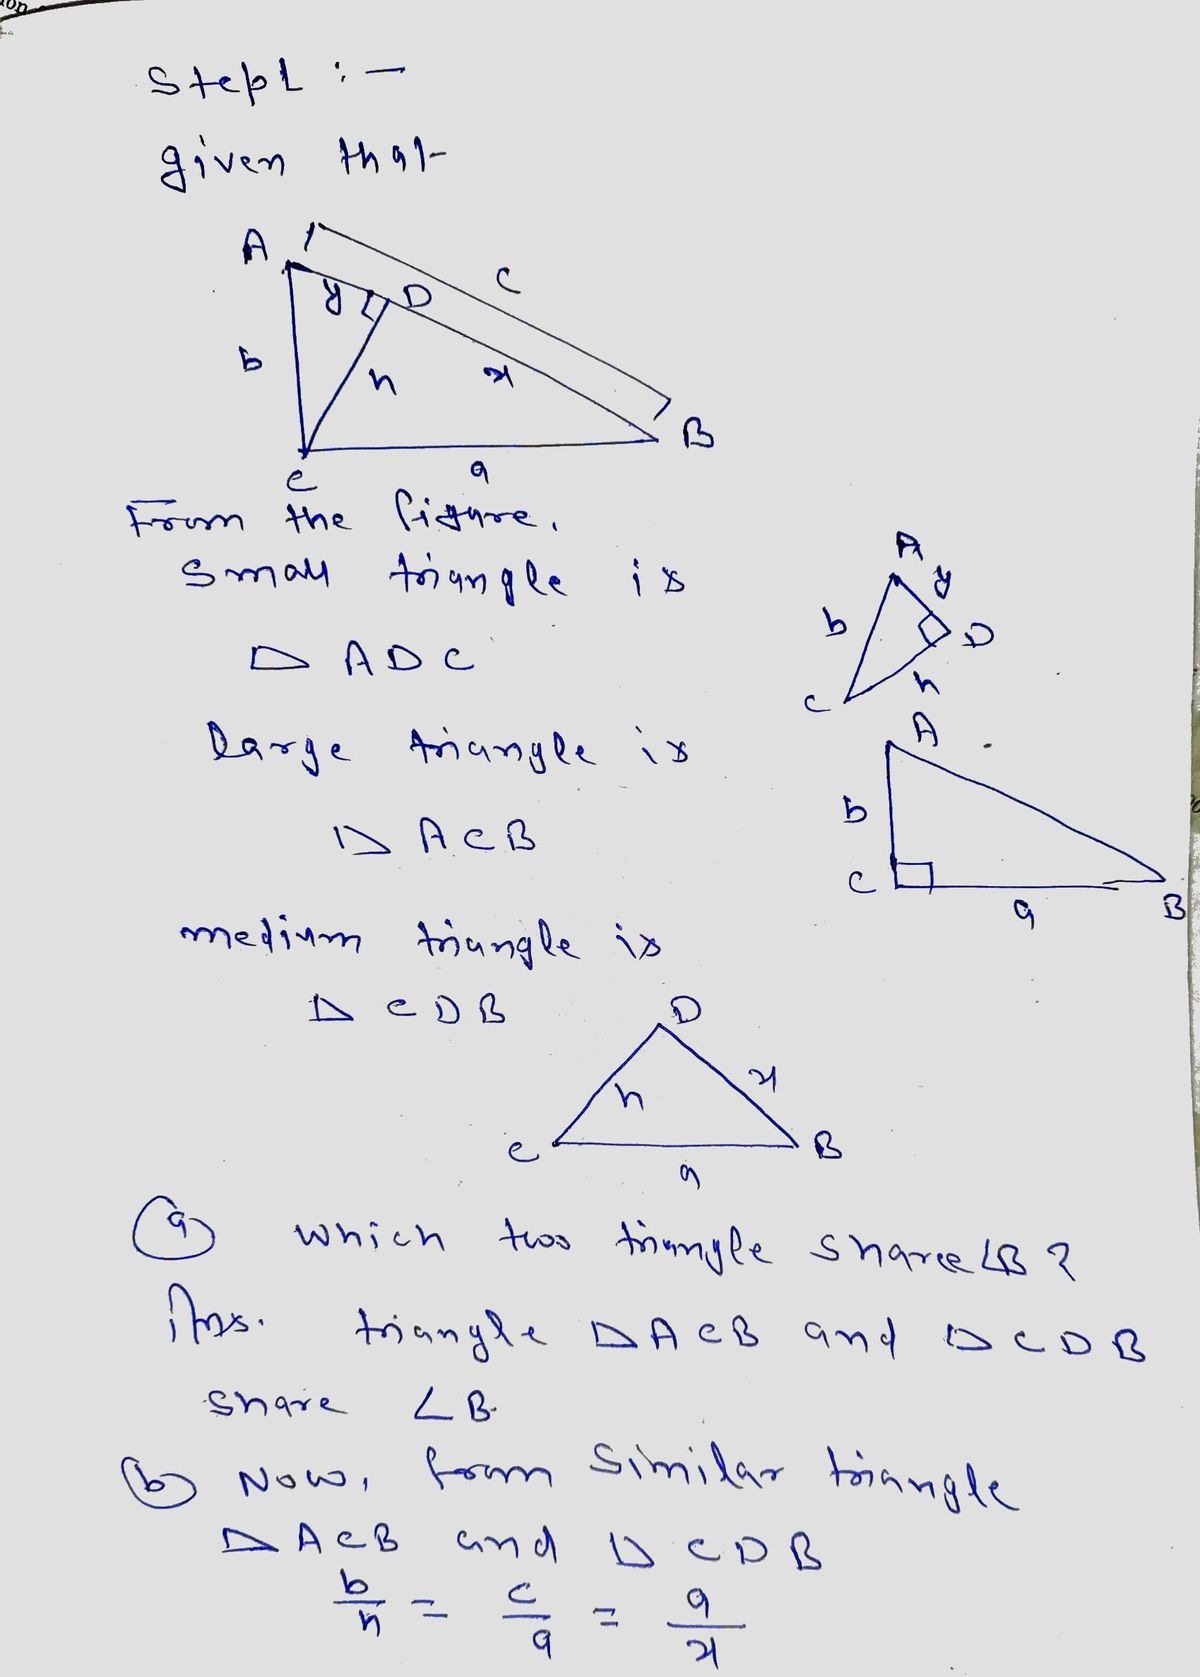 Step1 :-
given that
A
c
y
D
b
h
x
B
C
a
From the figure.
small triangle is
△ ADC
A
y
b
D
h
C
large triangle is
△ ACB
A
b
C
a
B
medium triangle is
△ CDB
D
h
x
C
B
a
(a) which two triangle share ∠B ?
Ans. triangle △ACB and △CDB
share ∠B.
(b) Now, from similar triangle
△ACB and △CDB
b/h = c/a = a/x